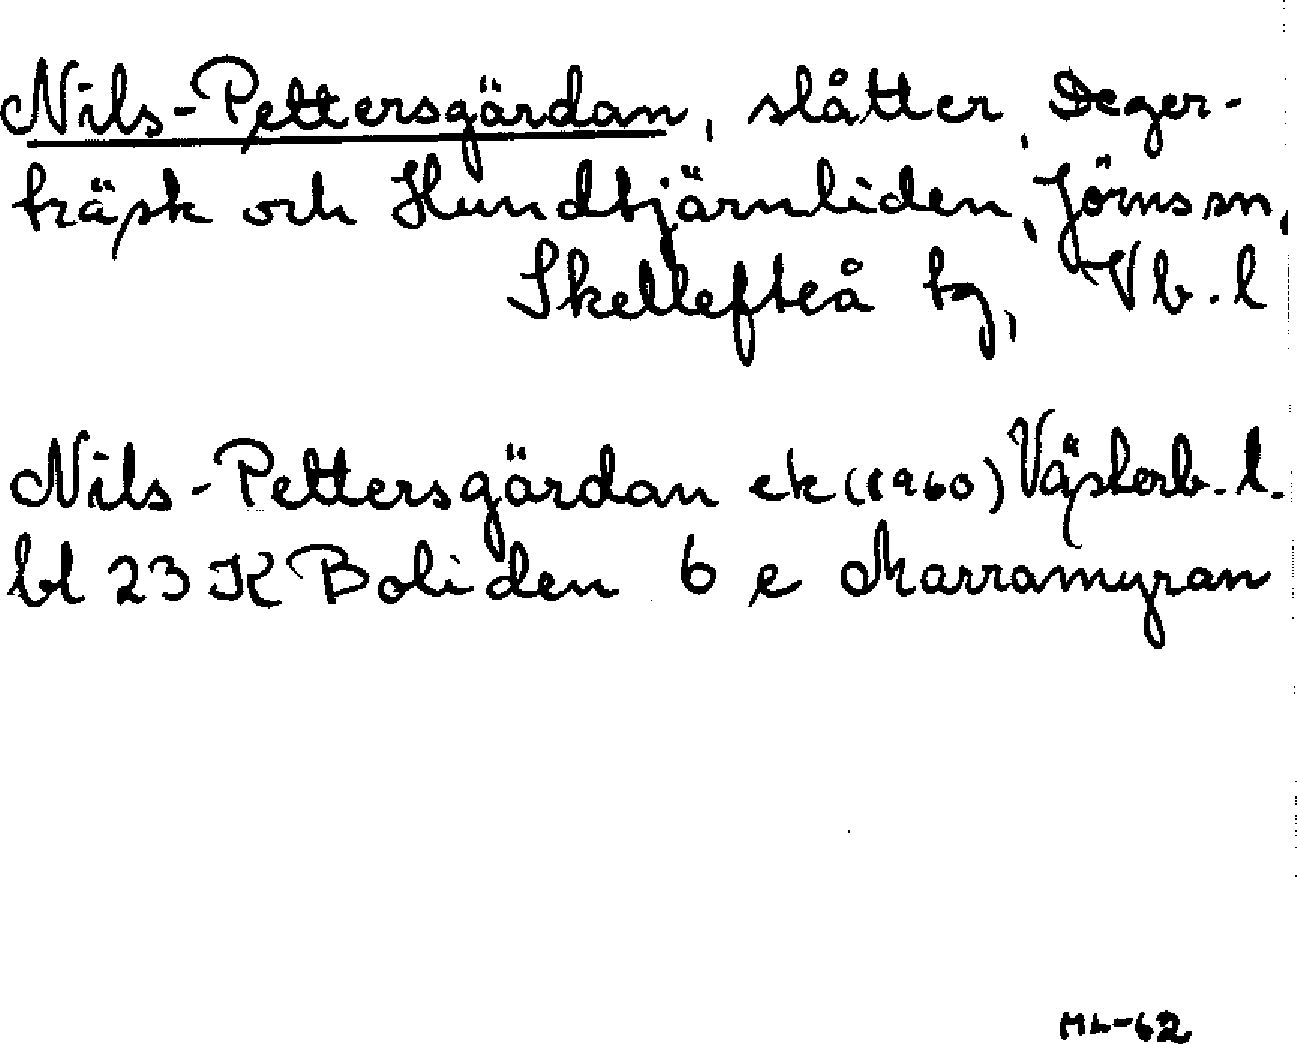 Nils-Pettersgärdan, slåtter, Deger-
träsk och Hundtjärnliden, Jörns sn,
Skellefteå tg, Vb.l
Nils-Pettersgärdan ek (1960) Västerb.l.
bl 23K Boliden 6 e Marramyran
ML-62